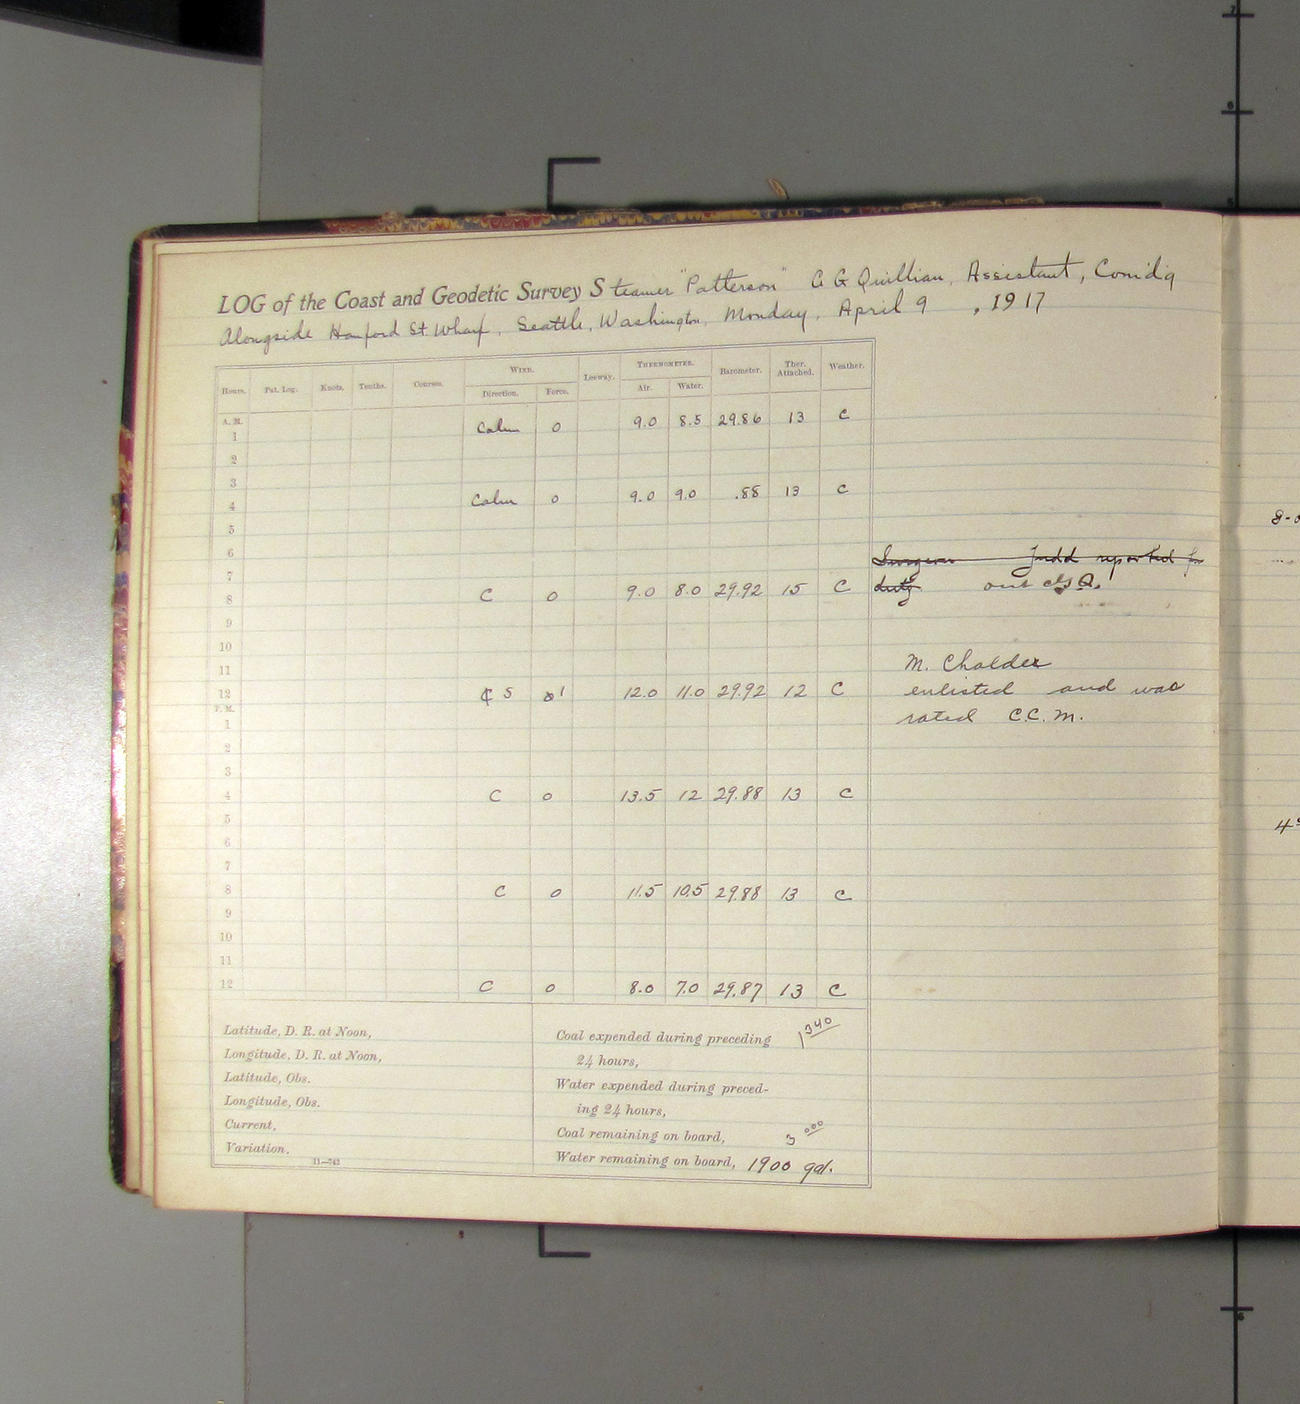 LOG of the Coast and Geodetic Survey Steamer "Patterson" C G Quillian, Assistant, Com'd'g
Alongside Hanford St. Wharf, Seattle, Washington, Monday, April 9, 1917
Hours. Pat. Log. Knots. Tenths. Courses. WIND. Leeway. THERMOMETER. Barometer. Ther. Attached. Weather.
Direction. Force. Air. Water.
A. M.
1 Calm 0 9.0 8.5 29.86 13 C
2
3
4 Calm 0 9.0 9.0 .88 13 C
5
6
Surgeon Judd reported for
7
duty
8 C 0 9.0 8.0 29.92 15 C
9
10
11
M. Cholder
12 S 1 12.0 11.0 29.92 12 C
enlisted and was
P. M.
1
rated C.C.M.
2
3
4 C 0 13.5 12 29.88 13 C
5
6
7
8 C 0 11.5 10.5 29.88 13 C
9
10
11
12 C 0 8.0 7.0 29.87 13 C
Latitude, D. R. at Noon,
Longitude, D. R. at Noon,
Latitude, Obs.
Longitude, Obs.
Current,
Variation.
11—743
Coal expended during preceding 1340
24 hours,
Water expended during preced-
ing 24 hours,
Coal remaining on board, 3000
Water remaining on board, 1900 gal.